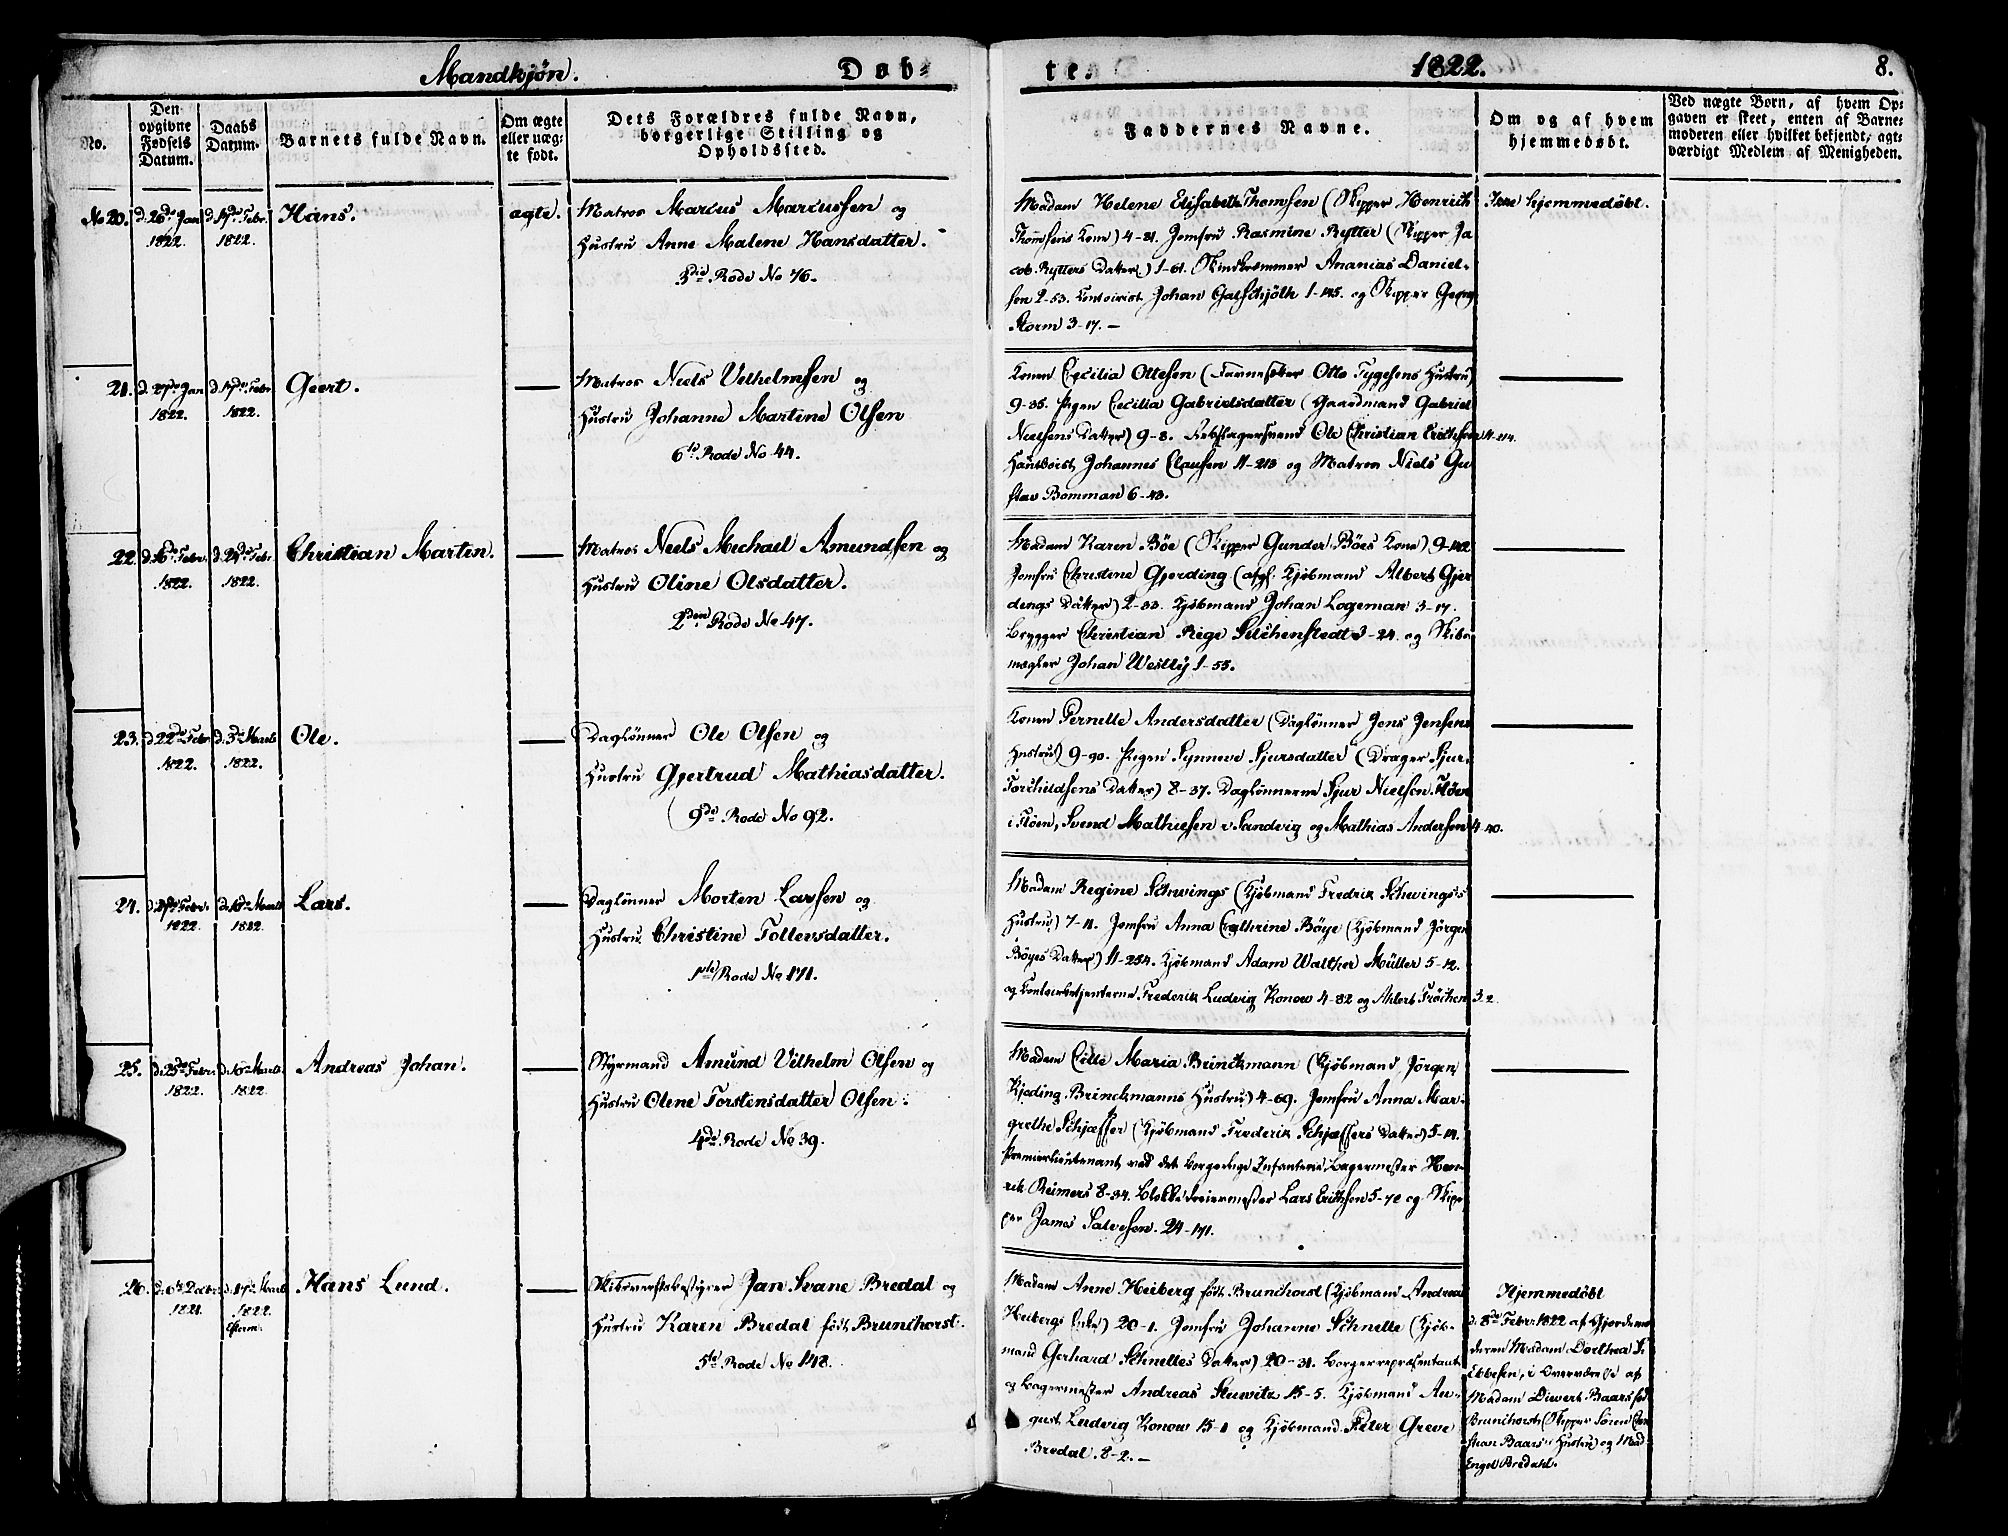 Mandkjøn.
Døb-
te.
1822.
8.
No.
Den opgivne Fødsels Datum.
Daabs Datum.
Barnets fulde Navn.
Om ægte eller uæg- te født.
Dets Forældres fulde Navn, borgerlige Stilling og Opholdssted.
Faddernes Navne.
Om og af hvem hjemmedøbt.
Ved uægte Børn, af hvem Op- gaven er skeet, enten af Barne- moderen eller hvilket bekjendt, agt- værdigt Medlem af Menigheden.
No 20.
d. 26de Jan 1822.
d. 17de Febr. 1822.
Hans.
ægte.
Matros Marcus Marcussen og
Hustru Anne Malene Hansdatter.
3die Rode No 76.
Madam Helene Elisabeth Thomsen (Skipper Henrich
Thomsens Kone) 4-81. Jomfru Rasmine Rytter (Skipper Ja
cob Rytters Datter) 1-61. Ananias Daniel-
sen 2-53. Contoirist Johan 1-145. og Skipper Georg
Storm 3-17.-
Ikke hjemmedøbt.
21.
d. 27de Jan 1822.
d. 17de Febr 1822.
Geert.
Matros Niels Vilhelmsen og
Hustru Johanne Martine Olsen
6te Rode No 44.
Konen Cecilia Ottesen (Otto Tygesens Hustru)
9-35. Pigen Cecilia Gabrielsdatter (Gaardmand Gabriel
Nielsens Datter) 9-8. Rebslagersvend Ole Christian Erichsen 11-214.
Hautboist Johannes Clausen 11-213 og Matros Niels Gu
stav Bomman 6-43.
22.
d. 16de Febr. 1822.
d. 24de Febr. 1822.
Christian Martin.
Matros Niels Michael Amundsen og
Hustru Oline Olsdatter.
2den Rode No 47.
Madam Karen Böe (Skipper Gunder Böes Kone) 9-142.
Jomfru Christine Gjerding (afg. Kjöbmand Albert Gjer
dings Datter) 2-33. Kjöbmand Johan Logeman 3-17.
Brygger Christian Rige 3-24. og Skibs
mægler Johan Westly 1-55.
23.
d. 22de Febr 1822.
d. 3de Marts 1822.
Ole.
Daglönner Ole Olsen og
Hustru Gjertrud Mathiasdatter.
(9de Rode No 92.
Konen Pernille Andersdatter (Daglönner Jens Jensens
Hustru) 9-90. Pigen Synneve Sjursdatter (Drager Sjur
Torchildsens Datter) 8-37. Daglönnerne Sjur Nielsen
i Flöen, Svend Mathiesen i Sandvig og Mathias Andersen 4-40.
24.
d. 27de Febr. 1822.
d. 10de Marts 1822.
Lars.
Daglönner Morten Larsen og
Hustru Christine Tollevsdatter.
1ste Rode No 171.
Madam Regine Schwings (Kjöbmand Fredrik Schwings's
Hustru) 7-11. Jomfru Anna Cathrine Böye (Kjöbmand Jörgen
Böyes Datter) 11-254. Kjöbmand Adam Walther Müller 5-12.
og Contoirbetjenterne Frederik Ludvig Konow 4-82 og Ahlert 3-2.
25.
d. 25de Febr. 1822.
d. 10de Marts 1822.
Andreas Johan.
Styrmand Amund Vilhelm Olsen og
Hustru Olene Torstensdatter Olsen.
4de Rode No 39.
Madam Cille Maria Brinckmann (Kjöbmand Jörgen
Kjeding Brinckmanns Hustru) 4-69. Jomfru Anna Mar-
grethe (Kjöbmand Frederik Datter) 5-14.
Premierlieutenant ved det borgerlige Infanterie, Bagermester Hen-
rik Reimers 8-34. Blokkedreiermester Lars Erichsen 5-72 og Skip
per James Salvesen. 24-171.
26.
d. 6te Decbr. 1821.
d. 17de Marts 1822. Efterm.
Hans Lund.
Skibsværftsbestyrer Jan Svane Bredal og
Hustru Karen Bredal födt Brunchorst.
5te Rode No 148.
Madam Anne Heiberg födt Brunchorst (Kjöbmand Andreas
Heibergs Enke) 20-1. Jomfru Johanne Schnelle (Kjöb-
mand Gerhard Schnelles Datter) 20-31. Borgerrepræsentant
og Bagermester Andreas Stuwitz 15-5. Kjöbmand Au-
gust Ludvig Konow 15-1 og Kjöbmand Peter Greve
Bredal. 8-2.-
Hjemmedöbt
d. 8de Febr. 1822 af Gjordemo
deren Madam Dorthea
Ebbesen, i Overværelse af
Madam Diwert Baars föd
Brunchorst (Skipper Sören Chri
stian Baars Hustru) og Mad
Engel Bredahl.